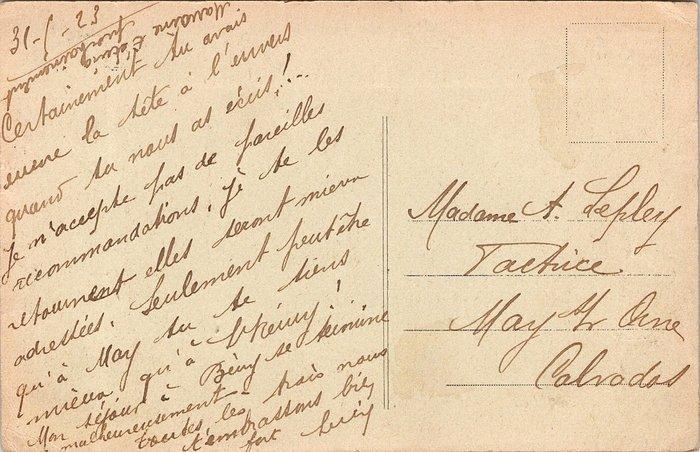 31-5-23
Certainement tu avais
encore la tête à l'envers
quand tu nous as écris!...
Je m'accepte pas de pareilles
recommandations; je te les
retournent elles seront mieux
adressées. Seulement peut être
qu'à May tu te tiens
mieux qu'à !
Mon séjour à Bény se termine
malheureusement -
toutes les trois nous
t'embrassons bien
fort
Madame A. Lepley
Factrice
May s/ Orne
Calvados
Madame
prochainement